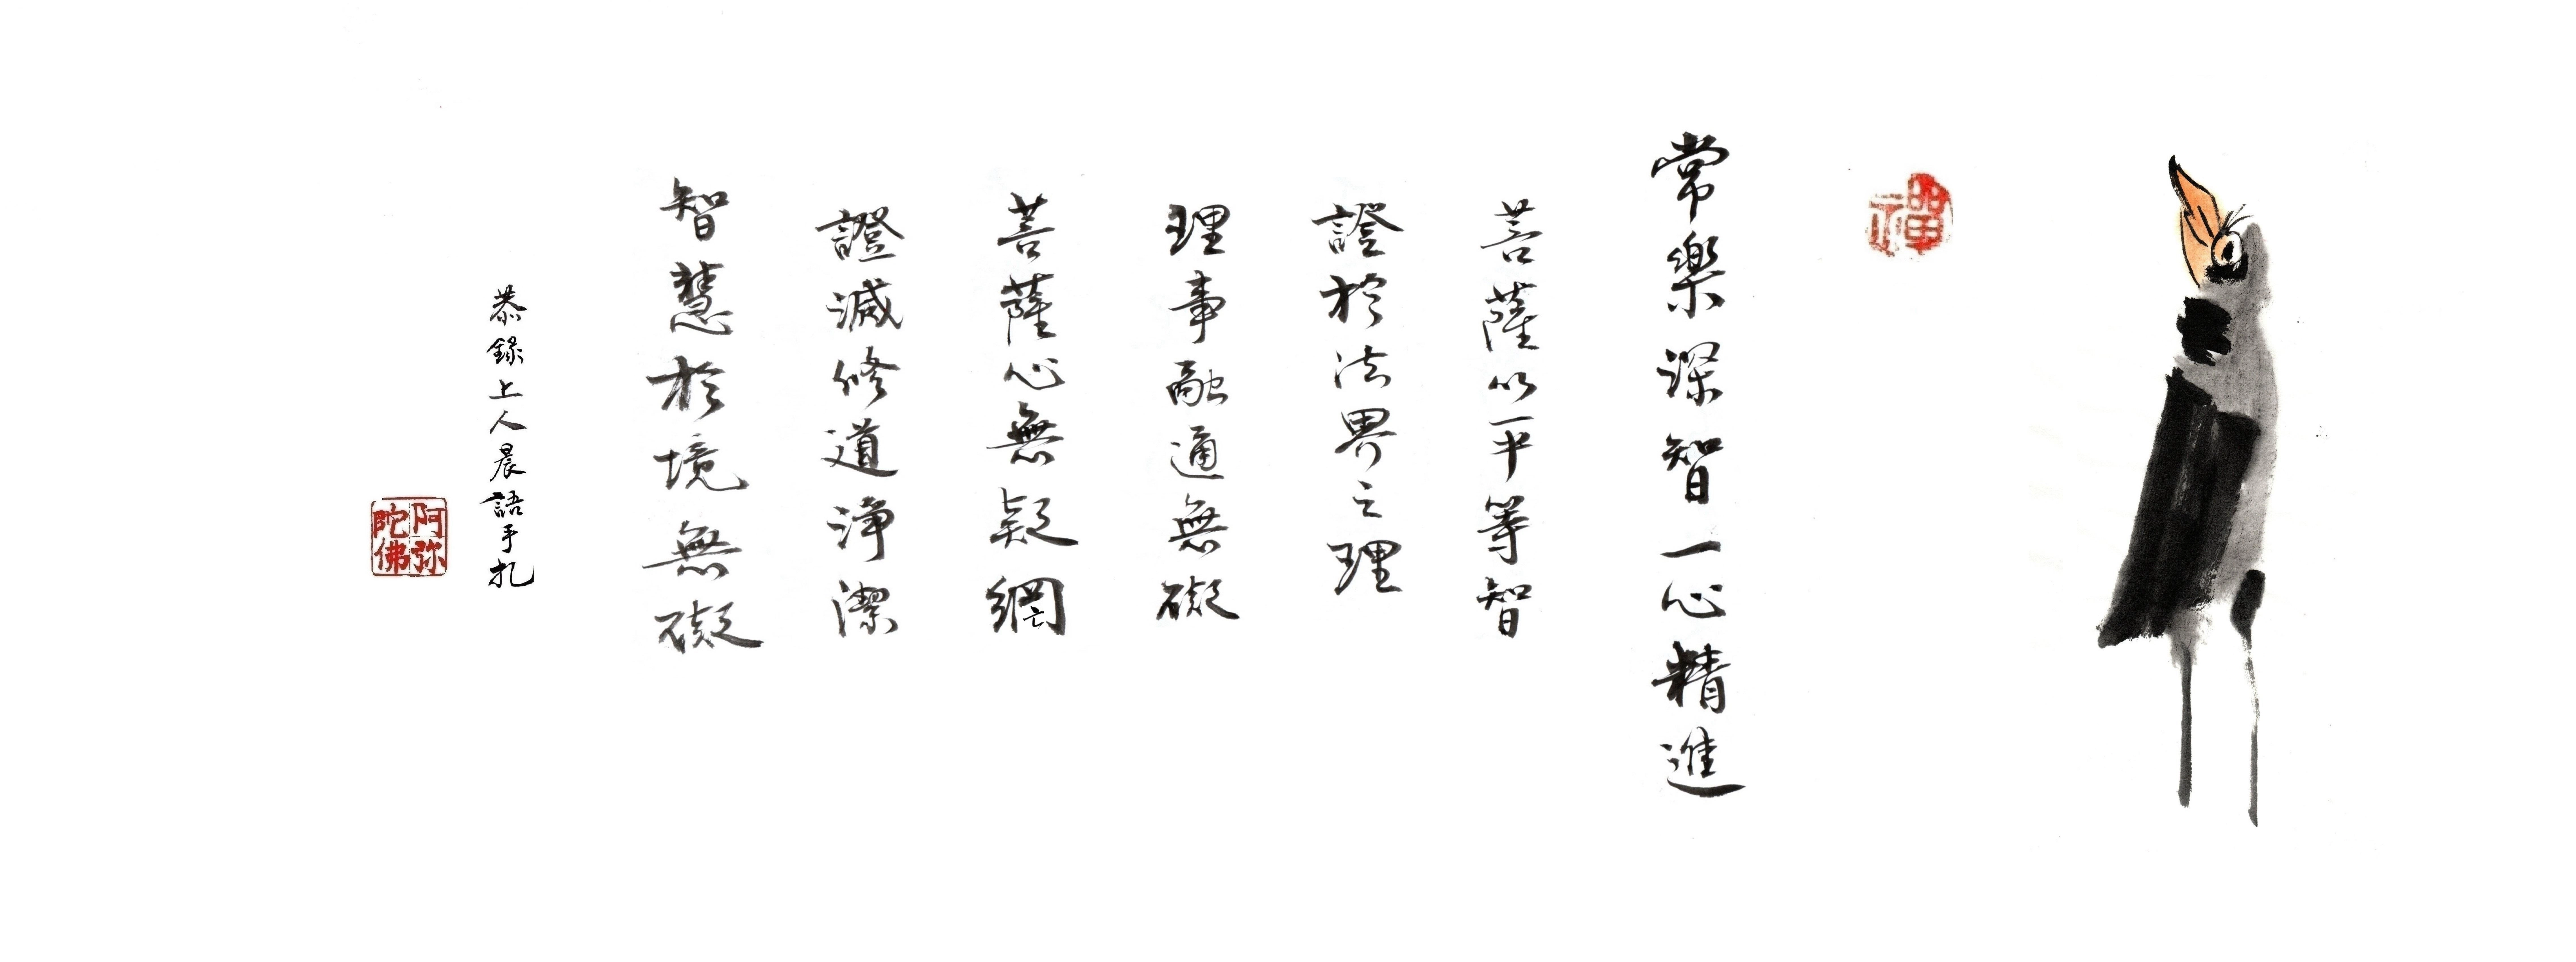 禪
常樂深智一心精進
菩薩以平等智
證於法界之理
理事融通無礙
菩薩心無疑網
證滅修道淨潔
智慧於境無礙
恭錄上人晨語手札
阿弥陀佛